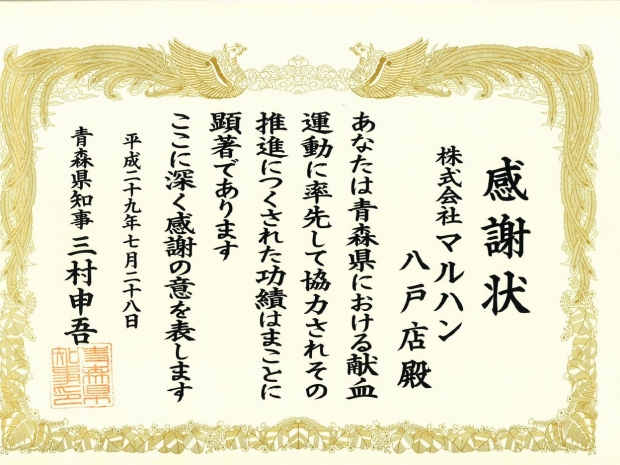 感謝状
株式会社マルハン
八戸店殿
あなたは青森県における献血
運動に率先して協力されその
推進につくされた功績はまことに
顕著であります
ここに深く感謝の意を表します
平成二十九年七月二十八日
青森県知事 三村申吾
青森県
知事印